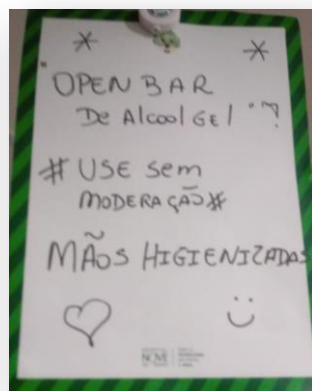 * *
OPEN BAR
De Alcool Gel
# USE sem
MODERAÇÃO #
MÃOS HIGIENIZADAS